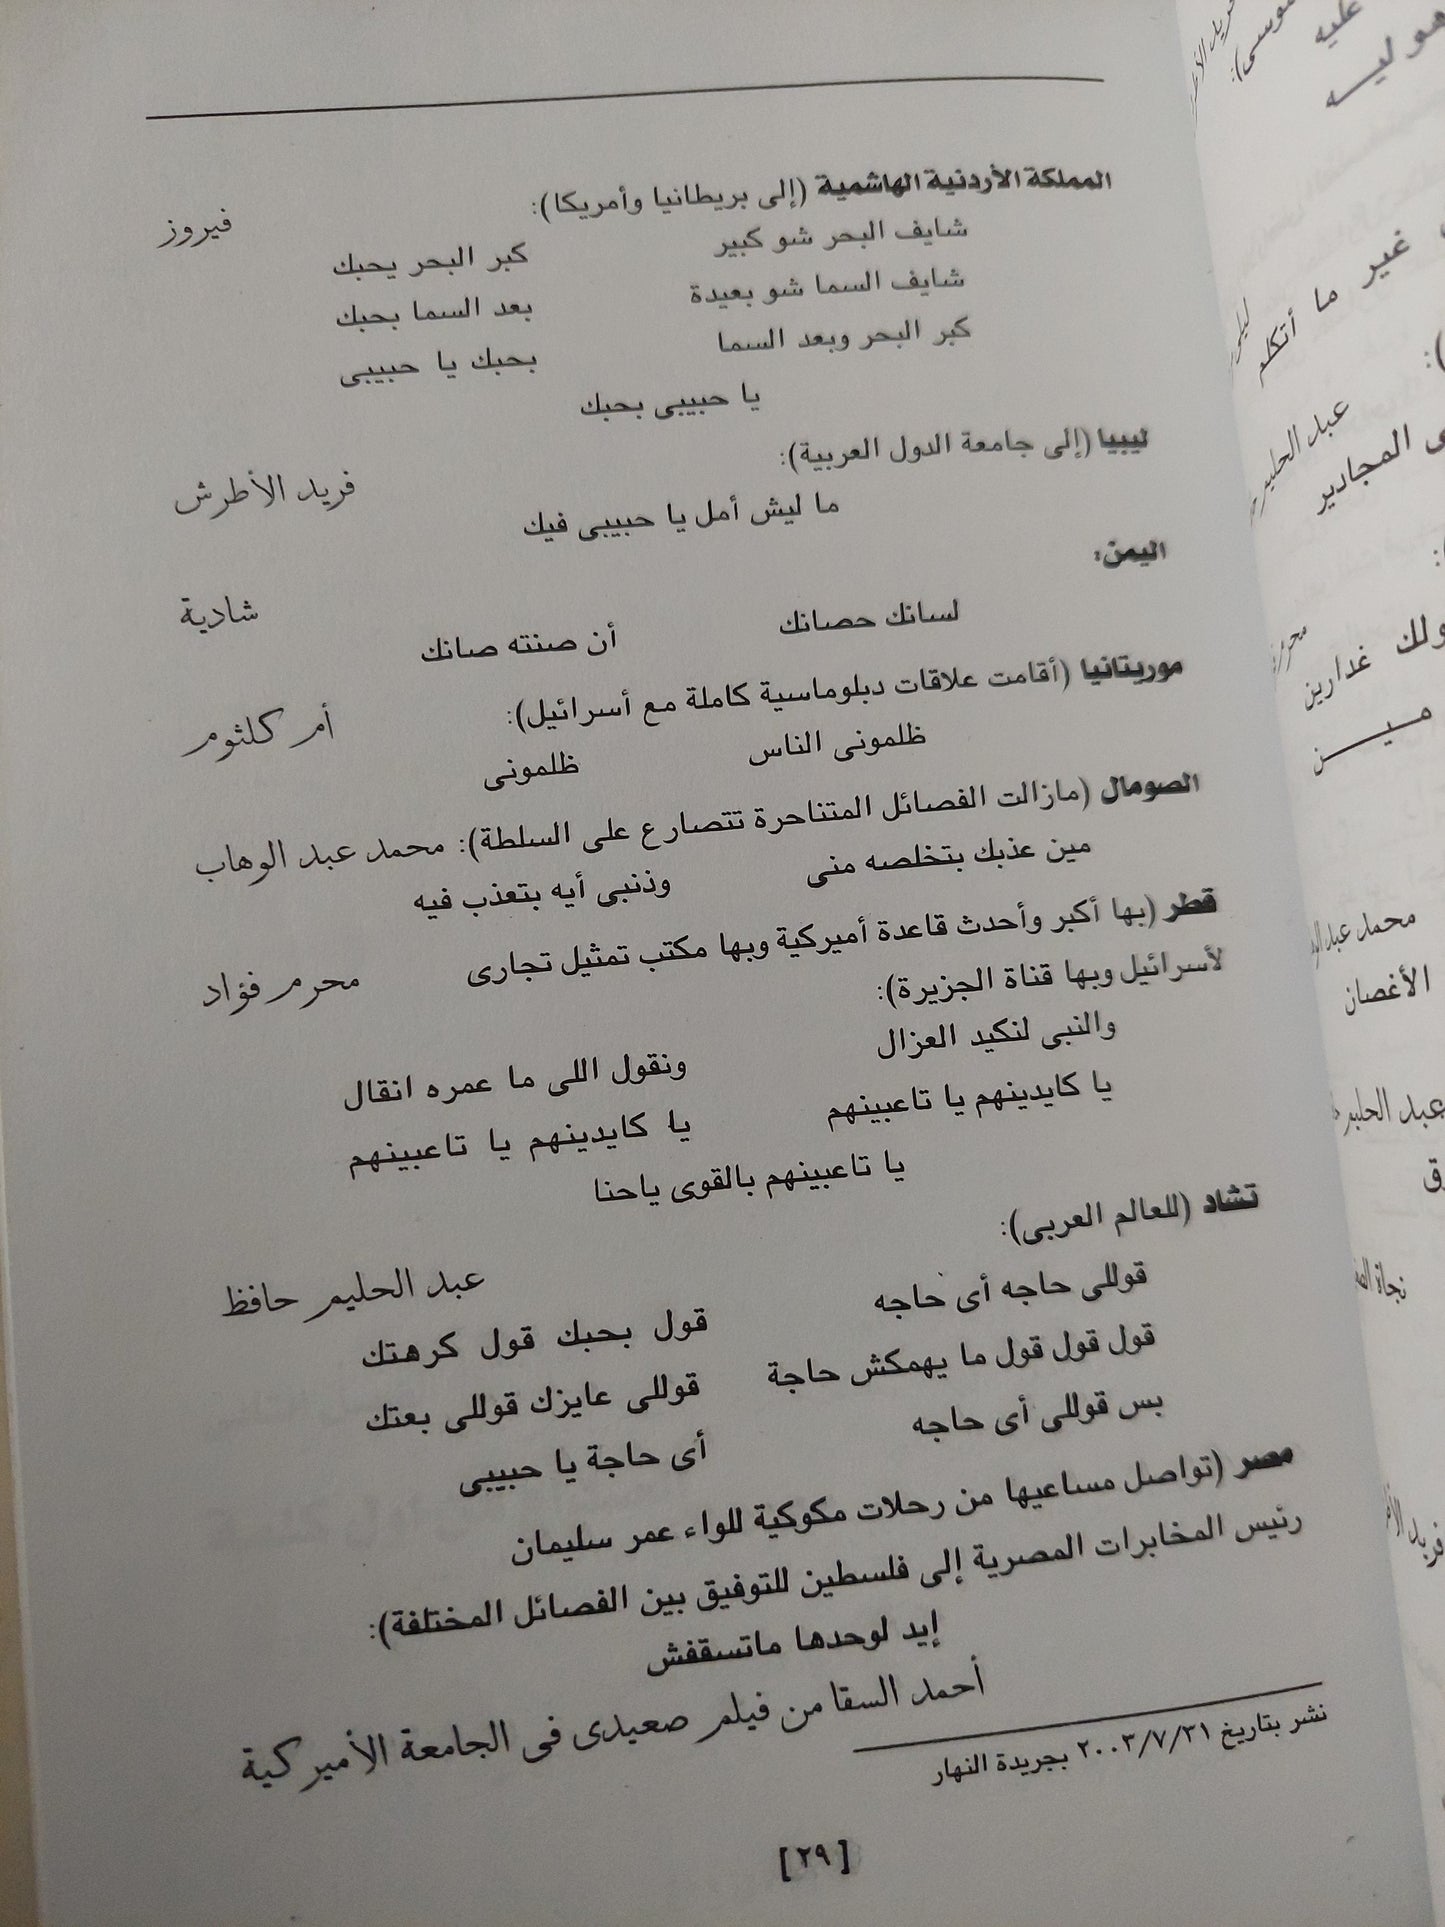 المملكة الأردنية الهاشمية (إلى بريطانيا وأمريكا): فيروز
شايف البحر شو كبير كبر البحر يحبك
شايف السما شو بعيدة بعد السما بحبك
كبر البحر وبعد السما بحبك يا حبيبى
يا حبيبى بحبك
ليبيا (إلى جامعة الدول العربية): فريد الأطرش
ما ليش أمل يا حبيبى فيك
اليمن: شادية
لسانك حصانك أن صنته صانك
موريتانيا (أقامت علاقات دبلوماسية كاملة مع أسرائيل): أم كلثوم
ظلمونى الناس ظلمونى
الصومال (مازالت الفصائل المتناحرة تتصارع على السلطة): محمد عبد الوهاب
مين عذبك بتخلصه منى وذنبى أيه بتعذب فيه
قطر (بها أكبر وأحدث قاعدة أميركية وبها مكتب تمثيل تجارى محرم فؤاد
لأسرائيل وبها قناة الجزيرة):
والنبى لنكيد العزال ونقول اللى ما عمره انقال
يا كايدينهم يا تاعبينهم يا كايدينهم يا تاعبينهم
يا تاعبينهم بالقوى ياحنا
تشاد (للعالم العربى): عبد الحليم حافظ
قوللى حاجه أى حاجه قول بحبك قول كرهتك
قول قول قول ما يهمكش حاجة قوللى عايزك قوللى بعتك
بس قوللى أى حاجه أى حاجة يا حبيبى
مصر (تواصل مساعيها من رحلات مكوكية للواء عمر سليمان
رئيس المخابرات المصرية إلى فلسطين للتوفيق بين الفصائل المختلفة):
إيد لوحدها ماتسقفش
أحمد السقا من فيلم صعيدى فى الجامعة الأميركية
نشر بتاريخ ٢٠٠٣/٧/٣١ بجريدة النهار
[٢٩]
عليه
هو ليه
غير ما أتكلم
عبد الحليم
المجادير
غدارين
مين
محمد
الأغصان
عبد الحليم
نجاة
فريد